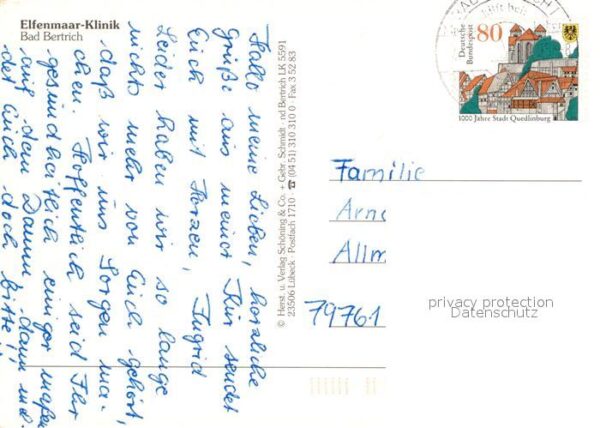 Elfenmaar-Klinik
Bad Bertrich
Hallo meine Lieben, herzliche
Grüße aus meiner Kur sendet
Euch mit Herzen, Ingrid
Leider haben wir so lange
nichts mehr von Euch gehört,
daß wir uns Sorgen ma-
chen. Hoffentlich seid Ihr
gesundheitlich einigermaßen
auf dem Damm, dann mel-
det Euch doch bitte!!
© Herst. u. Verlag Schöning & Co. + Gebr. Schmidt · nd Bertrich LK 5591
23506 Lübeck · Postfach 1710 · ☎ (04 51) 310 310 0 · Fax 3 52 83
Deutsche
Bundespost
80
1000 Jahre Stadt Quedlinburg
Familie
Arno
Allm
79761
privacy protection
Datenschutz